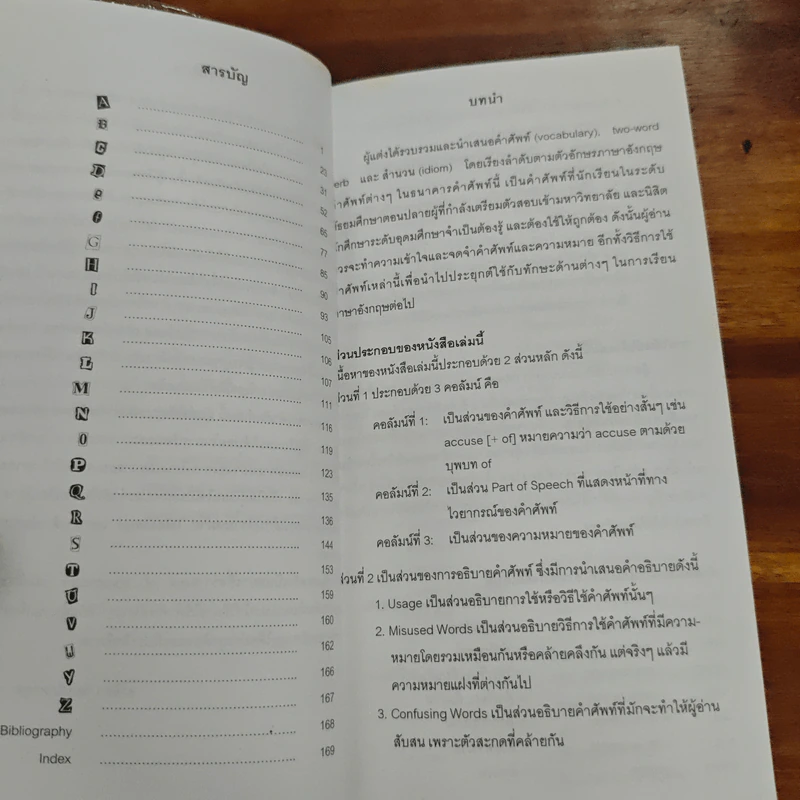 สารบัญ
A ........ 1
B ........ 20
C ........ 31
D ........ 52
e ........ 66
f ........ 77
G ........ 85
H ........ 90
I ........ 93
J ........ 105
K ........ 106
L ........ 107
M ........ 111
N ........ 116
O ........ 119
P ........ 123
Q ........ 135
R ........ 136
S ........ 144
T ........ 153
U ........ 159
V ........ 160
W ........ 162
Y ........ 166
Z ........ 167
Bibliography ........ 168
Index ........ 169
บทนำ
ผู้แต่งได้รวบรวมและนำเสนอคำศัพท์ (vocabulary), two-word
erb และ สำนวน (idiom) โดยเรียงลำดับตามตัวอักษรภาษาอังกฤษ
คำศัพท์ต่างๆ ในธนาคารคำศัพท์นี้ เป็นคำศัพท์ที่นักเรียนในระดับ
มัธยมศึกษาตอนปลายผู้ที่กำลังเตรียมตัวสอบเข้ามหาวิทยาลัย และนิสิต
นักศึกษาระดับอุดมศึกษาจำเป็นต้องรู้ และต้องใช้ให้ถูกต้อง ดังนั้นผู้อ่าน
ควรจะทำความเข้าใจและจดจำคำศัพท์และความหมาย อีกทั้งวิธีการใช้
คำศัพท์เหล่านี้เพื่อนำไปประยุกต์ใช้กับทักษะด้านต่างๆ ในการเรียน
ภาษาอังกฤษต่อไป
ส่วนประกอบของหนังสือเล่มนี้
เนื้อหาของหนังสือเล่มนี้ประกอบด้วย 2 ส่วนหลัก ดังนี้
ส่วนที่ 1 ประกอบด้วย 3 คอลัมน์ คือ
คอลัมน์ที่ 1: เป็นส่วนของคำศัพท์ และวิธีการใช้อย่างสั้นๆ เช่น
accuse [+ of] หมายความว่า accuse ตามด้วย
บุพบท of
คอลัมน์ที่ 2: เป็นส่วน Part of Speech ที่แสดงหน้าที่ทาง
ไวยากรณ์ของคำศัพท์
คอลัมน์ที่ 3: เป็นส่วนของความหมายของคำศัพท์
ส่วนที่ 2 เป็นส่วนของการอธิบายคำศัพท์ ซึ่งมีการนำเสนอคำอธิบายดังนี้
1. Usage เป็นส่วนอธิบายการใช้หรือวิธีใช้คำศัพท์นั้นๆ
2. Misused Words เป็นส่วนอธิบายวิธีการใช้คำศัพท์ที่มีความ-
หมายโดยรวมเหมือนกันหรือคล้ายคลึงกัน แต่จริงๆ แล้วมี
ความหมายแฝงที่ต่างกันไป
3. Confusing Words เป็นส่วนอธิบายคำศัพท์ที่มักจะทำให้ผู้อ่าน
สับสน เพราะตัวสะกดที่คล้ายกัน